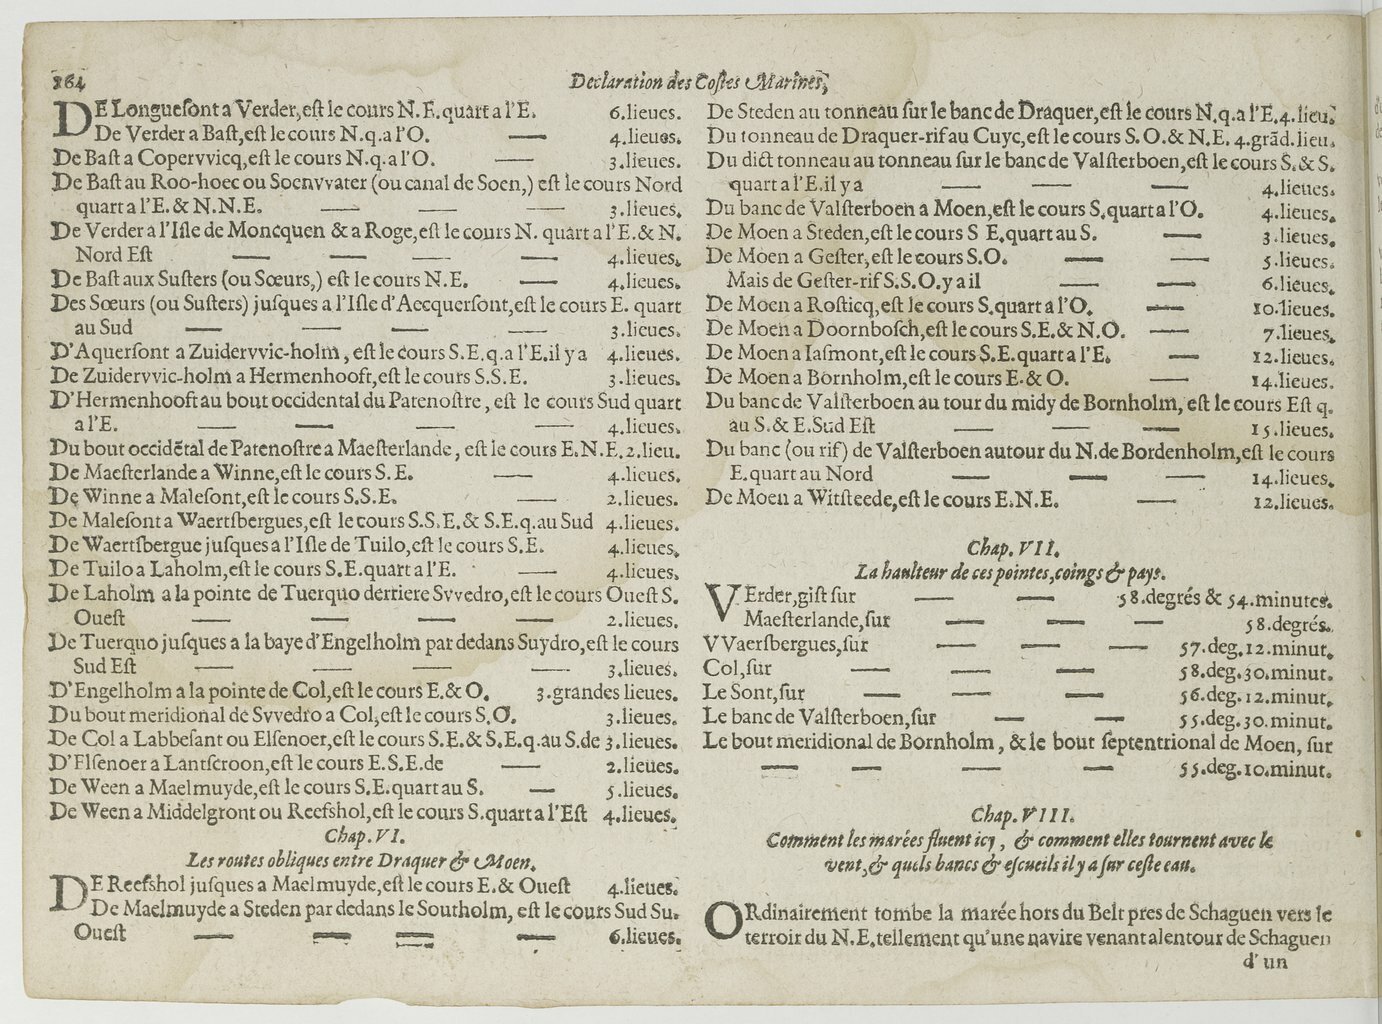 164
Declaration des Costes Marines,
DE Longuesont a Verder, est le cours N.E. quart a l'E. 6. lieues.
De Verder a Bast, est le cours N.q.a l'O. — 4. lieues.
De Bast a Copervvicq, est le cours N.q.a l'O. — 3. lieues.
De Bast au Roo-hoec ou Soenvvater (ou canal de Soen,) est le cours Nord
quart a l'E. & N.N.E. — — — 3. lieues.
De Verder a l'Isle de Moncquen & a Roge, est le cours N. quart a l'E. & N.
Nord Est — — — — 4. lieues.
De Bast aux Susters (ou Sœurs,) est le cours N.E. — 4. lieues.
Des Sœurs (ou Susters) jusques a l'Isle d'Aecquersont, est le cours E. quart
au Sud — — — — 3. lieues.
D'Aquersont a Zuidervvic-holm, est le cours S.E.q.a l'E. il y a 4. lieues.
De Zuidervvic-holm a Hermenhooft, est le cours S.S.E. 3. lieues.
D'Hermenhooft au bout occidental du Patenostre, est le cours Sud quart
a l'E. — — — — 4. lieues.
Du bout occidẽtal de Patenostre a Maesterlande, est le cours E.N.E. 2. lieu.
De Maesterlande a Winne, est le cours S.E. — 4. lieues.
De Winne a Malesont, est le cours S.S.E. — 2. lieues.
De Malesont a Waertsbergues, est le cours S.S.E. & S.E.q. au Sud 4. lieues.
De Waertsbergue jusques a l'Isle de Tuilo, est le cours S.E. 4. lieues.
De Tuilo a Laholm, est le cours S.E. quart a l'E. — 4. lieues.
De Laholm a la pointe de Tuerquo derriere Svvedro, est le cours Ouest S.
Ouest — — — — 2. lieues.
De Tuerquo jusques a la baye d'Engelholm par dedans Suydro, est le cours
Sud Est — — — — 3. lieues.
D'Engelholm a la pointe de Col, est le cours E. & O. 3. grandes lieues.
Du bout meridional de Svvedro a Col, est le cours S.O. 3. lieues.
De Col a Labbesant ou Elsenoer, est le cours S.E. & S.E.q. au S. de 3. lieues.
D'Elsenoer a Lantscroon, est le cours E.S.E. de — 2. lieues.
De Ween a Maelmuyde, est le cours S.E. quart au S. — 5. lieues.
De Ween a Middelgront ou Reefshol, est le cours S. quart a l'Est 4. lieues.
Chap. VI.
Les routes obliques entre Draquer & Moen.
DE Reefshol jusques a Maelmuyde, est le cours E. & Ouest 4. lieues.
De Maelmuyde a Steden par dedans le Southolm, est le cours Sud Su.
Ouest — — — — 6. lieues.
De Steden au tonneau sur le banc de Draquer, est le cours N.q.a l'E. 4. lieu.
Du tonneau de Draquer-rif au Cuyc, est le cours S.O. & N.E. 4. grãd. lieu.
Du dict tonneau au tonneau sur le banc de Valsterboen, est le cours S. & S.
quart a l'E. il y a — — — 4. lieues.
Du banc de Valsterboen a Moen, est le cours S. quart a l'O. 4. lieues.
De Moen a Steden, est le cours S E. quart au S. — 3. lieues.
De Moen a Gester, est le cours S.O. — — 5. lieues.
Mais de Gester-rif S.S.O. y a il — — 6. lieues.
De Moen a Rosticq, est le cours S. quart a l'O. — 10. lieues.
De Moen a Doornbosch, est le cours S.E. & N.O. — 7. lieues.
De Moen a Iasmont, est le cours S.E. quart a l'E. — 12. lieues.
De Moen a Bornholm, est le cours E. & O. — 14. lieues.
Du banc de Valsterboen au tour du midy de Bornholm, est le cours Est q.
au S. & E. Sud Est — — — 15. lieues.
Du banc (ou rif) de Valsterboen autour du N. de Bordenholm, est le cours
E. quart au Nord — — — 14. lieues.
De Moen a Witsteede, est le cours E.N.E. — 12. lieues.
Chap. VII.
La haulteur de ces pointes, coings & pays.
VErder, gist sur — — 58. degrés & 54. minutes.
Maesterlande, sur — — — 58. degrés.
VVaersbergues, sur — — — 57. deg. 12. minut.
Col, sur — — — 58. deg. 30. minut.
Le Sont, sur — — — 56. deg. 12. minut.
Le banc de Valsterboen, sur — — 55. deg. 30. minut.
Le bout meridional de Bornholm, & le bout septentrional de Moen, sur
— — — — 55. deg. 10. minut.
Chap. VIII.
Comment les marées fluent icy, & comment elles tournent avec le
vent, & quels bancs & escueils il y a sur ceste eau.
ORdinairement tombe la marée hors du Belt pres de Schaguen vers le
terroir du N.E. tellement qu'une navire venant alentour de Schaguen
d'un